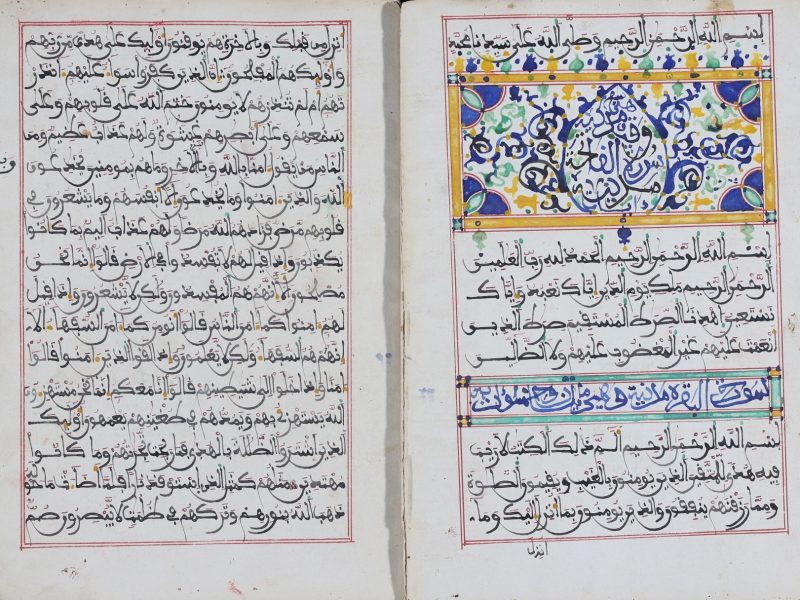 بسم الله الرحمن الرحيم وصلى الله على سيدنا
سورة الفاتحة
بسم الله الرحمن الرحيم الحمد لله رب العلمين
الرحمن الرحيم ملك يوم الدين اياك نعبد واياك
نستعين اهدنا الصرط المستقيم صرط الذين
انعمت عليهم غير المغضوب عليهم ولا الضالين
سورة البقرة مدنية وهي
بسم الله الرحمن الرحيم الم ذلك الكتب لا ريب
فيه هدى للمتقين الذين يومنون بالغيب ويقيمون الصلوة
ومما رزقنهم ينفقون والذين يومنون بما انزل اليك وما
انزل
انزل من قبلك وبالاخرة هم يوقنون اوليك على هدى من ربهم
واوليك هم المفلحون ان الذين كفروا سواء عليهم ءانذر
تهم ام لم تنذرهم لا يومنون ختم الله على قلوبهم وعلى
سمعهم وعلى ابصرهم غشوة ولهم عذاب عظيم ومن
الناس من يقول امنا بالله وباليوم الاخر وما هم بمومنين يخدعون
الله والذين امنوا وما يخدعون الا انفسهم وما يشعرون في
قلوبهم مرض فزادهم الله مرضا ولهم عذاب اليم بما كانوا
يكذبون واذا قيل لهم لا تفسدوا في الارض قالوا انما نحن
مصلحون الا انهم هم المفسدون ولكن لا يشعرون واذا قيل
لهم امنوا كما امن الناس قالوا انومن كما امن السفهاء الا
انهم هم السفهاء ولكن لا يعلمون واذا لقوا الذين امنوا قالوا
امنا واذا خلوا الى شيطينهم قالوا انا معكم انما نحن مستهزءون
الله يستهزئ بهم ويمدهم في طغينهم يعمهون اوليك
الذين اشتروا الضللة بالهدى فما ربحت تجرتهم وما كانوا
مهتدين مثلهم كمثل الذي استوقد نارا فلما اضاءت ما حوله
ذهب الله بنورهم وتركهم في ظلمت لا يبصرون صم